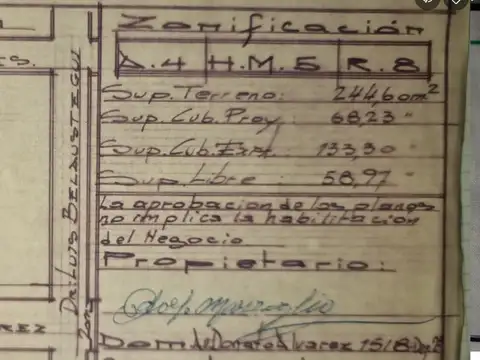 Zonificación
A.4 H.M.5 R.8
Sup. Terreno: 244,60m²
Sup. Cub. Proy: 68,23 "
Sup. Cub. Exis: 133,30 "
Sup. Libre: 58,97 "
La aprobacion de los planos
no implica la habilitacion
del Negocio
Propietario:
Dom. Alvarez 1518
Dr. LUIS BELAUSTEGUI
REZ